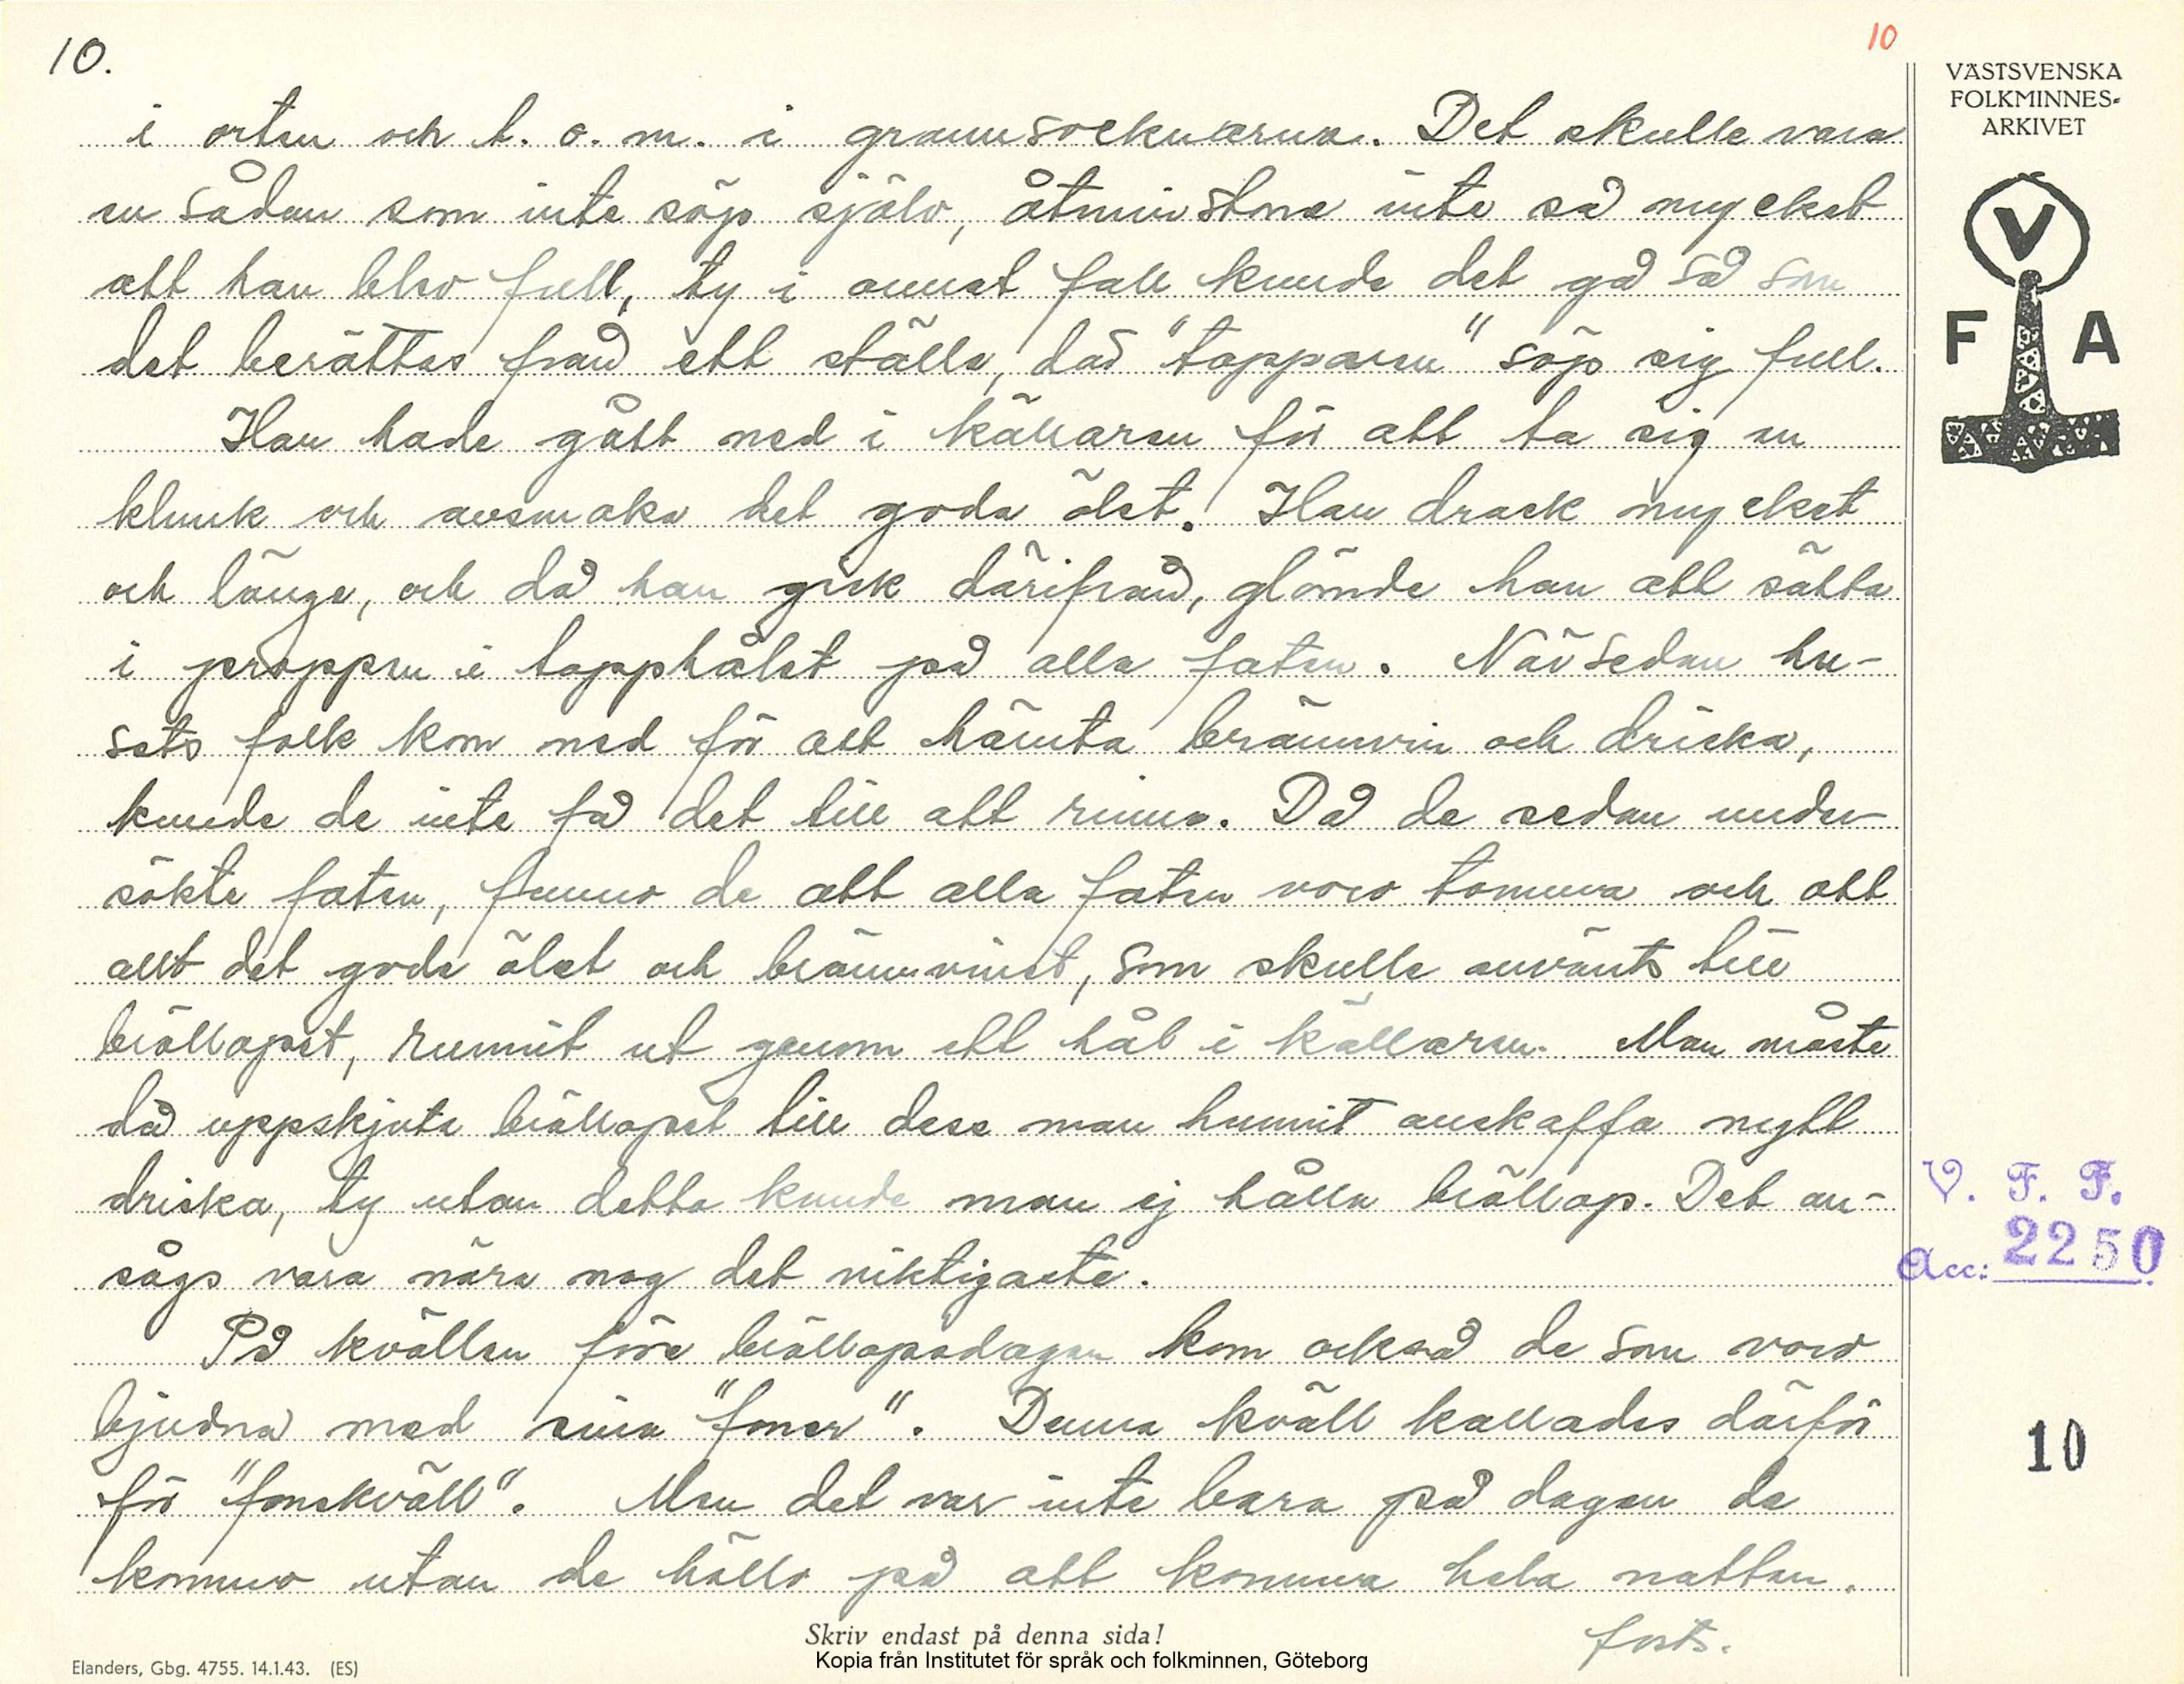 10.
10
VÄSTSVENSKA
FOLKMINNES-
ARKIVET
V
F A
i orten och t. o. m. i grannsocknarna. Det skulle vara
en sådan som inte söp själv, åtminstone inte så mycket
att han blev full, ty i annat fall kunde det gå så som
det berättas från ett ställe, där "tapparen" söp sig full.
Han hade gått ned i källaren för att ta sig en
klunk och avsmaka det goda ölet. Han drack mycket
och länge, och då han gick därifrån, glömde han att sätta
i proppen i tapphålet på alla faten. När sedan hu-
sets folk kom ned för att hämta brännvin och dricka,
kunde de inte få det till att rinna. Då de sedan under-
sökte faten, funno de att alla faten voro tomma och att
allt det goda ölet och brännvinet, som skulle använts till
bröllopet, runnit ut genom ett hål i källaren. Man måste
då uppskjuta bröllopet till dess man hunnit anskaffa nytt
dricka, ty utan detta kunde man ej hålla bröllop. Det an-
sågs vara nära nog det viktigaste.
På kvällen före bröllopsdagen kom också de som voro
bjudna med sina "foner". Denna kväll kallades därför
för "fonskväll". Men det var inte bara på dagen de
kommo utan de höllo på att komma hela natten.
forts.
V. F. F.
Acc: 2250
10
Skriv endast på denna sida!
Kopia från Institutet för språk och folkminnen, Göteborg
Elanders, Gbg. 4755. 14.1.43. (ES)